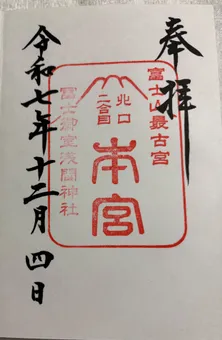 奉拝
富士山最古宮
北口
二合目
本宮
富士御室浅間神社
令和七年十二月四日